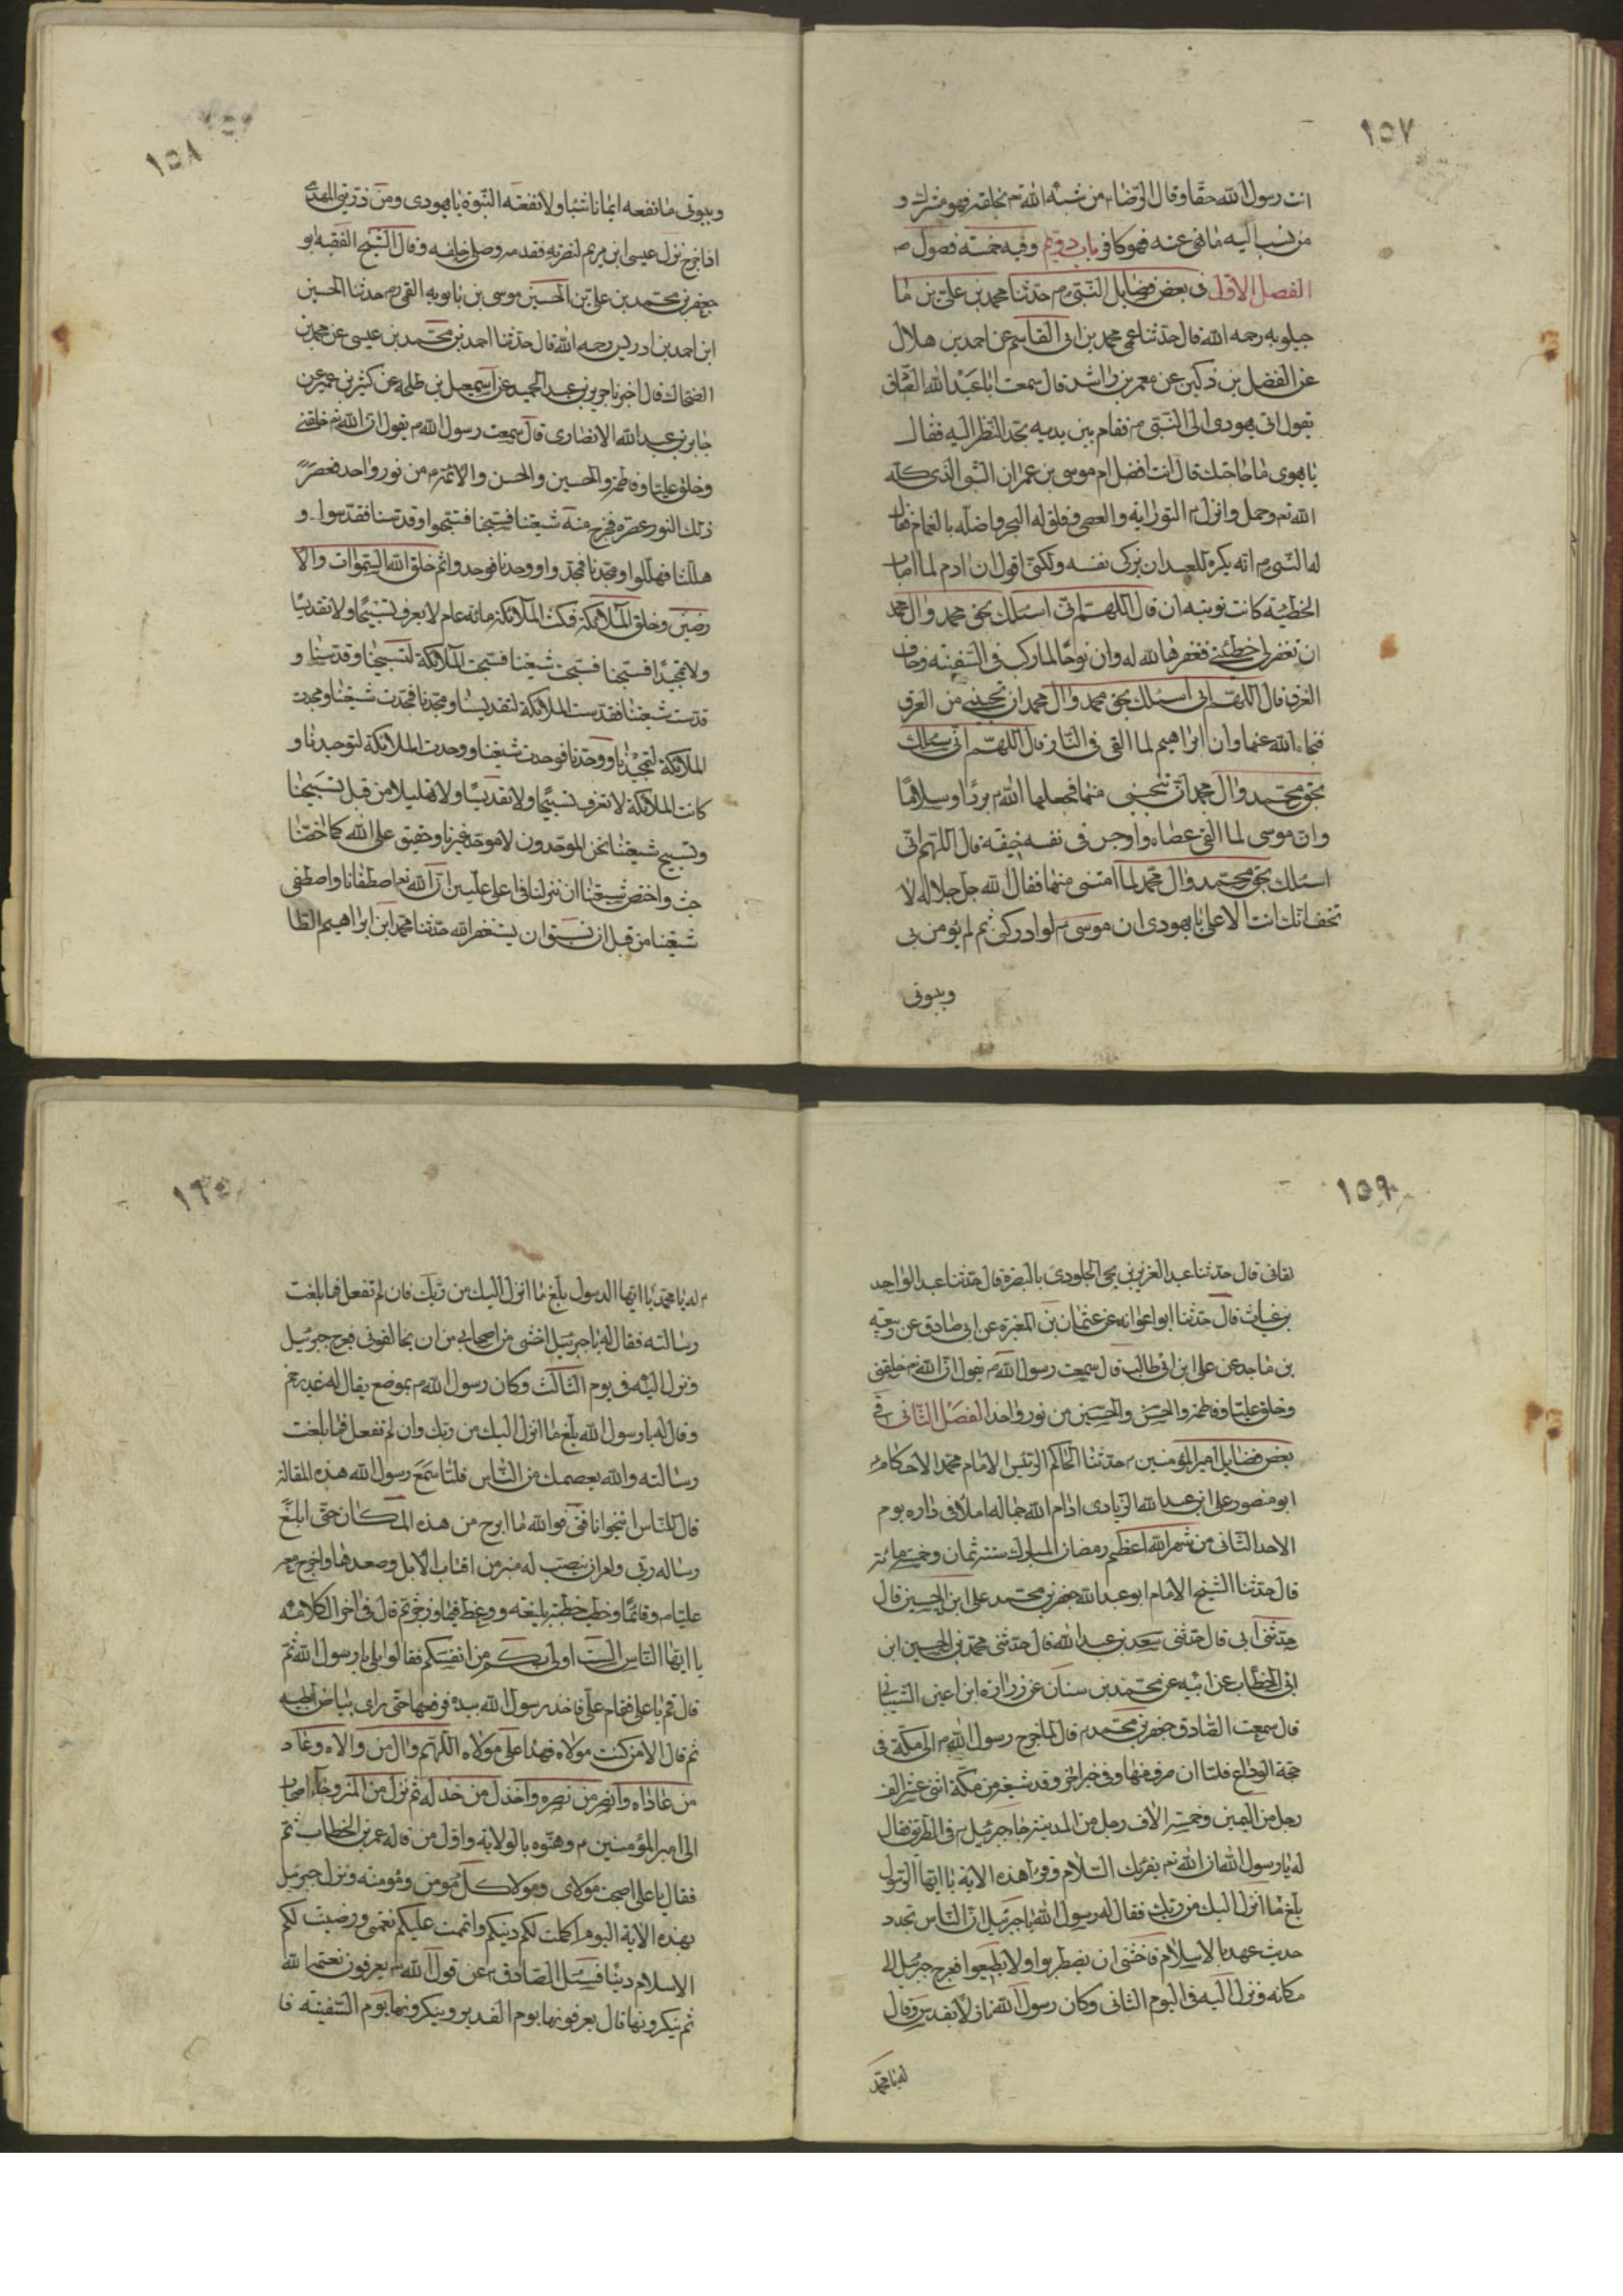 ١٥٧
انت رسول الله حقا وقال الرضا ء من شبه الله تع بخلقه فهو مشرك و
من نسب اليه ما نهى عنه فهو كافر باب دويم وفيه خمسة فصول ص
الفصل الاول فى بعض فضايل النبى م حدثنا محمد بن على بن ما
جيلويه رحمه الله قال حدثنا عمى محمد بن ابى القاسم عن احمد بن هلال
عن الفضل بن دكين عن معمر بن راشد قال سمعت ابا عبد الله الصادق
يقول اتى يهودى الى النبى م فقام بين يديه يحد النظر اليه فقال
يا يهوى ما حاجتك قال انت افضل ام موسى بن عمران النبى الذى كلمه
الله تع وجل وانزل التورايه والعصى وفلق له البحر واضله بالغمام فقال
له النبى م انه يكره للعبد ان يزكى نفسه ولكنى اقول ان ادم لما اصاب
الخطيئة كانت توبته ان قال اللهم انى اسئلك بحق محمد وال محمد
ان تغفر لى خطيئتى فغفرها الله له وان نوحا لما ركب فى السفينه وخاف
الغرق قال اللهم انى اسئلك بحق محمد وال محمد ان تنجينى من الغرق
فنجاه الله عنها وان ابراهيم لما القى فى النار قال اللهم انى سئلك
بحق محمد وال محمد ان تنجينى منها فجعلها الله بردا وسلاما
وان موسى لما القى عصاه واوجس فى نفسه خيفة قال اللهم انى
اسئلك بحق محمد وال محمد لما امنتنى منها فقال الله جل جلاله لا
تخف انك انت الاعلى يا يهودى ان موسى لو ادركنى ثم لم يؤمن بى
وبنبوتى
١٥٨
وبنبوتى ما نفعه ايمانا شيا ولا نفعته النبوة يا يهودى ومن ذريتى المهدى
اذا خرج نزل عيسى ابن مريم لنصرته فقدمه وصلى خلفه وقال الشيخ الفقيه ابو
جعفر بن محمد بن على بن الحسين موسى بن بابويه القمى م حدثنا الحسين
ابن احمد بن ادريس رحمه الله قال حدثنا احمد بن محمد بن عيسى عن محمد بن
الضحاك قال اخبرنا جرير بن عبد الحميد عن اسمعيل بن طلحه عن كثير بن عمير عن
جابر بن عبد الله الانصارى قال سمعت رسول الله م يقول ان الله تع خلقنى
وخلق عليا وفاطمة والحسين والحسن والائمة م من نور واحد فعصر
ذلك النور عصرة فخرج منه شيعتنا فسبحنا فسبحوا وقدسنا فقدسوا و
هللنا فهللوا ومجدنا فمجدوا ووحدنا فوحدوا ثم خلق الله السموات والا
رضين وخلق الملائكة فمكثت الملائكة مائة عام لا يعرف تسبيحا ولا تقديسا
ولا تمجيدا فسبحنا فسبحت شيعتنا فسبحت الملائكة لتسبيحنا وقدسنا و
قدست شيعتنا فقدست الملائكة لتقديسنا ومجدنا فمجدت شيعتنا ومجدت
الملائكة لتمجيدنا ووحدنا فوحدت شيعتنا ووحدت الملائكة لتوحيدنا و
كانت الملائكة لا تعرف تسبيحا ولا تقديسا ولا تهليلا من قبل تسبيحنا
وتسبيح شيعتنا نحن الموحدون لا موحد غيرنا وحقيق على الله كما اختصنا
واختص شيعتنا ان ننزلنا فى اعلى عليين ان الله تع اصطفانا واصطفى
شيعتنا من قبل ان يستغفر الله حدثنا محمد ابن ابراهيم الطا
١٥٩
لقانى قال حدثنا عبد العزيز بن يحيى الجلودى بالبصرة قال حدثنا عبد الواحد
بن غياث قال حدثنا ابو اعوانه عن عثمان بن المغيرة عن ابى صادق عن ربيعه
بن ماجد عن على ابن ابى طالب قال سمعت رسول الله م يقول ان الله تع خلقنى
وخلق عليا وفاطمة والحسن والحسين من نور واحد الفصل الثانى فى
بعض فضايل امير المؤمنين ء حدثنا الحاكم الرئيس الامام محمد الاحكام
ابو منصور على ابن عبد الله الزيادى ادام الله جماله املاء فى داره يوم
الاحد الثانى من شهر الله اعظم رمضان المبارك سنة ثمان وخمسمائة
قال حدثنا الشيخ الامام ابو عبد الله جعفر بن محمد على ابن الحسين قال
حدثنى ابى قال حدثنى سعد بن عبد الله قال حدثنى محمد بن الحسين ابن
ابى الخطاب عن ابيه عن محمد بن سنان عن زراره ابن اعين الشيبانى
قال سمعت الصادق جعفر بن محمد ء قال لما خرج رسول الله م الى مكة فى
حجة الوداع فلما انصرف منها وفى خبر اخر وقد شيعه من مكة اثنى عشر الف
رجل من اليمن وخمسة الاف رجل من المدينة جاء جبرئيل ء فى الطريق فقال
له يا رسول الله ان الله تع يقرئك السلام وقرا هذه الاية يا ايها الرسول
بلغ ما انزل اليك من ربك فقال له رسول الله يا جبرئيل ان الناس تجدد
حديث عهد بالاسلام فاخشى ان يضطربوا ولا يطيعوا فعرج جبرئيل الى
مكانه ونزل اليه فى اليوم الثانى وكان رسول الله نازلا بغدير وقال
له يا محمد
١٦٠
له يا محمد يا ايها الرسول بلغ ما انزل اليك من ربك فان لم تفعل فما بلغت
رسالته فقال له يا جبرئيل اخشى من اصحابى من ان يخالفونى فعرج جبرئيل
ونزل اليه فى يوم الثالث وكان رسول الله م بموضع يقال له غدير خم
وقال له يا رسول الله بلغ ما انزل اليك من ربك وان لم تفعل فما بلغت
رسالته والله يعصمك من الناس فلما سمع رسول الله هذه المقالة
قال للناس انيخوا ناقتى فوالله ما ابرح من هذه المكان حتى ابلغ
رساله ربى وامر ان ينصب له منبر من اقتاب الابل وصعدها واخرج معه
عليا ء وقائما وخطب خطبة بليغة ووعظ فيها وزجر ثم قال فى اخر الكلامه
يا ايها الناس الست اولى بكم من انفسكم فقالوا بلى يا رسول الله ثم
قال قم يا على فقام على فاخذ رسول الله بيده فرفعها حتى راى بياض ابطيه
ثم قال الا من كنت مولاه فهذا على مولاه اللهم وال من والاه وعاد
من عاداه وانصر من نصره واخذل من خذله ثم نزل من المنبر وجاء اصحابه
الى امير المؤمنين ء وهنوه بالولاية واول من قاله عمر بن الخطاب ثم
فقال يا على اصبحت مولاى ومولا كل مؤمن ومؤمنه ونزل جبرئيل
بهذه الاية اليوم اكملت لكم دينكم واتممت عليكم نعمتى ورضيت لكم
الاسلام دينا فسئل الصادق ء عن قول الله يعرفون نعمة الله
ثم ينكرونها قال يعرفونها يوم الغدير وينكرونها يوم السقيفة فا